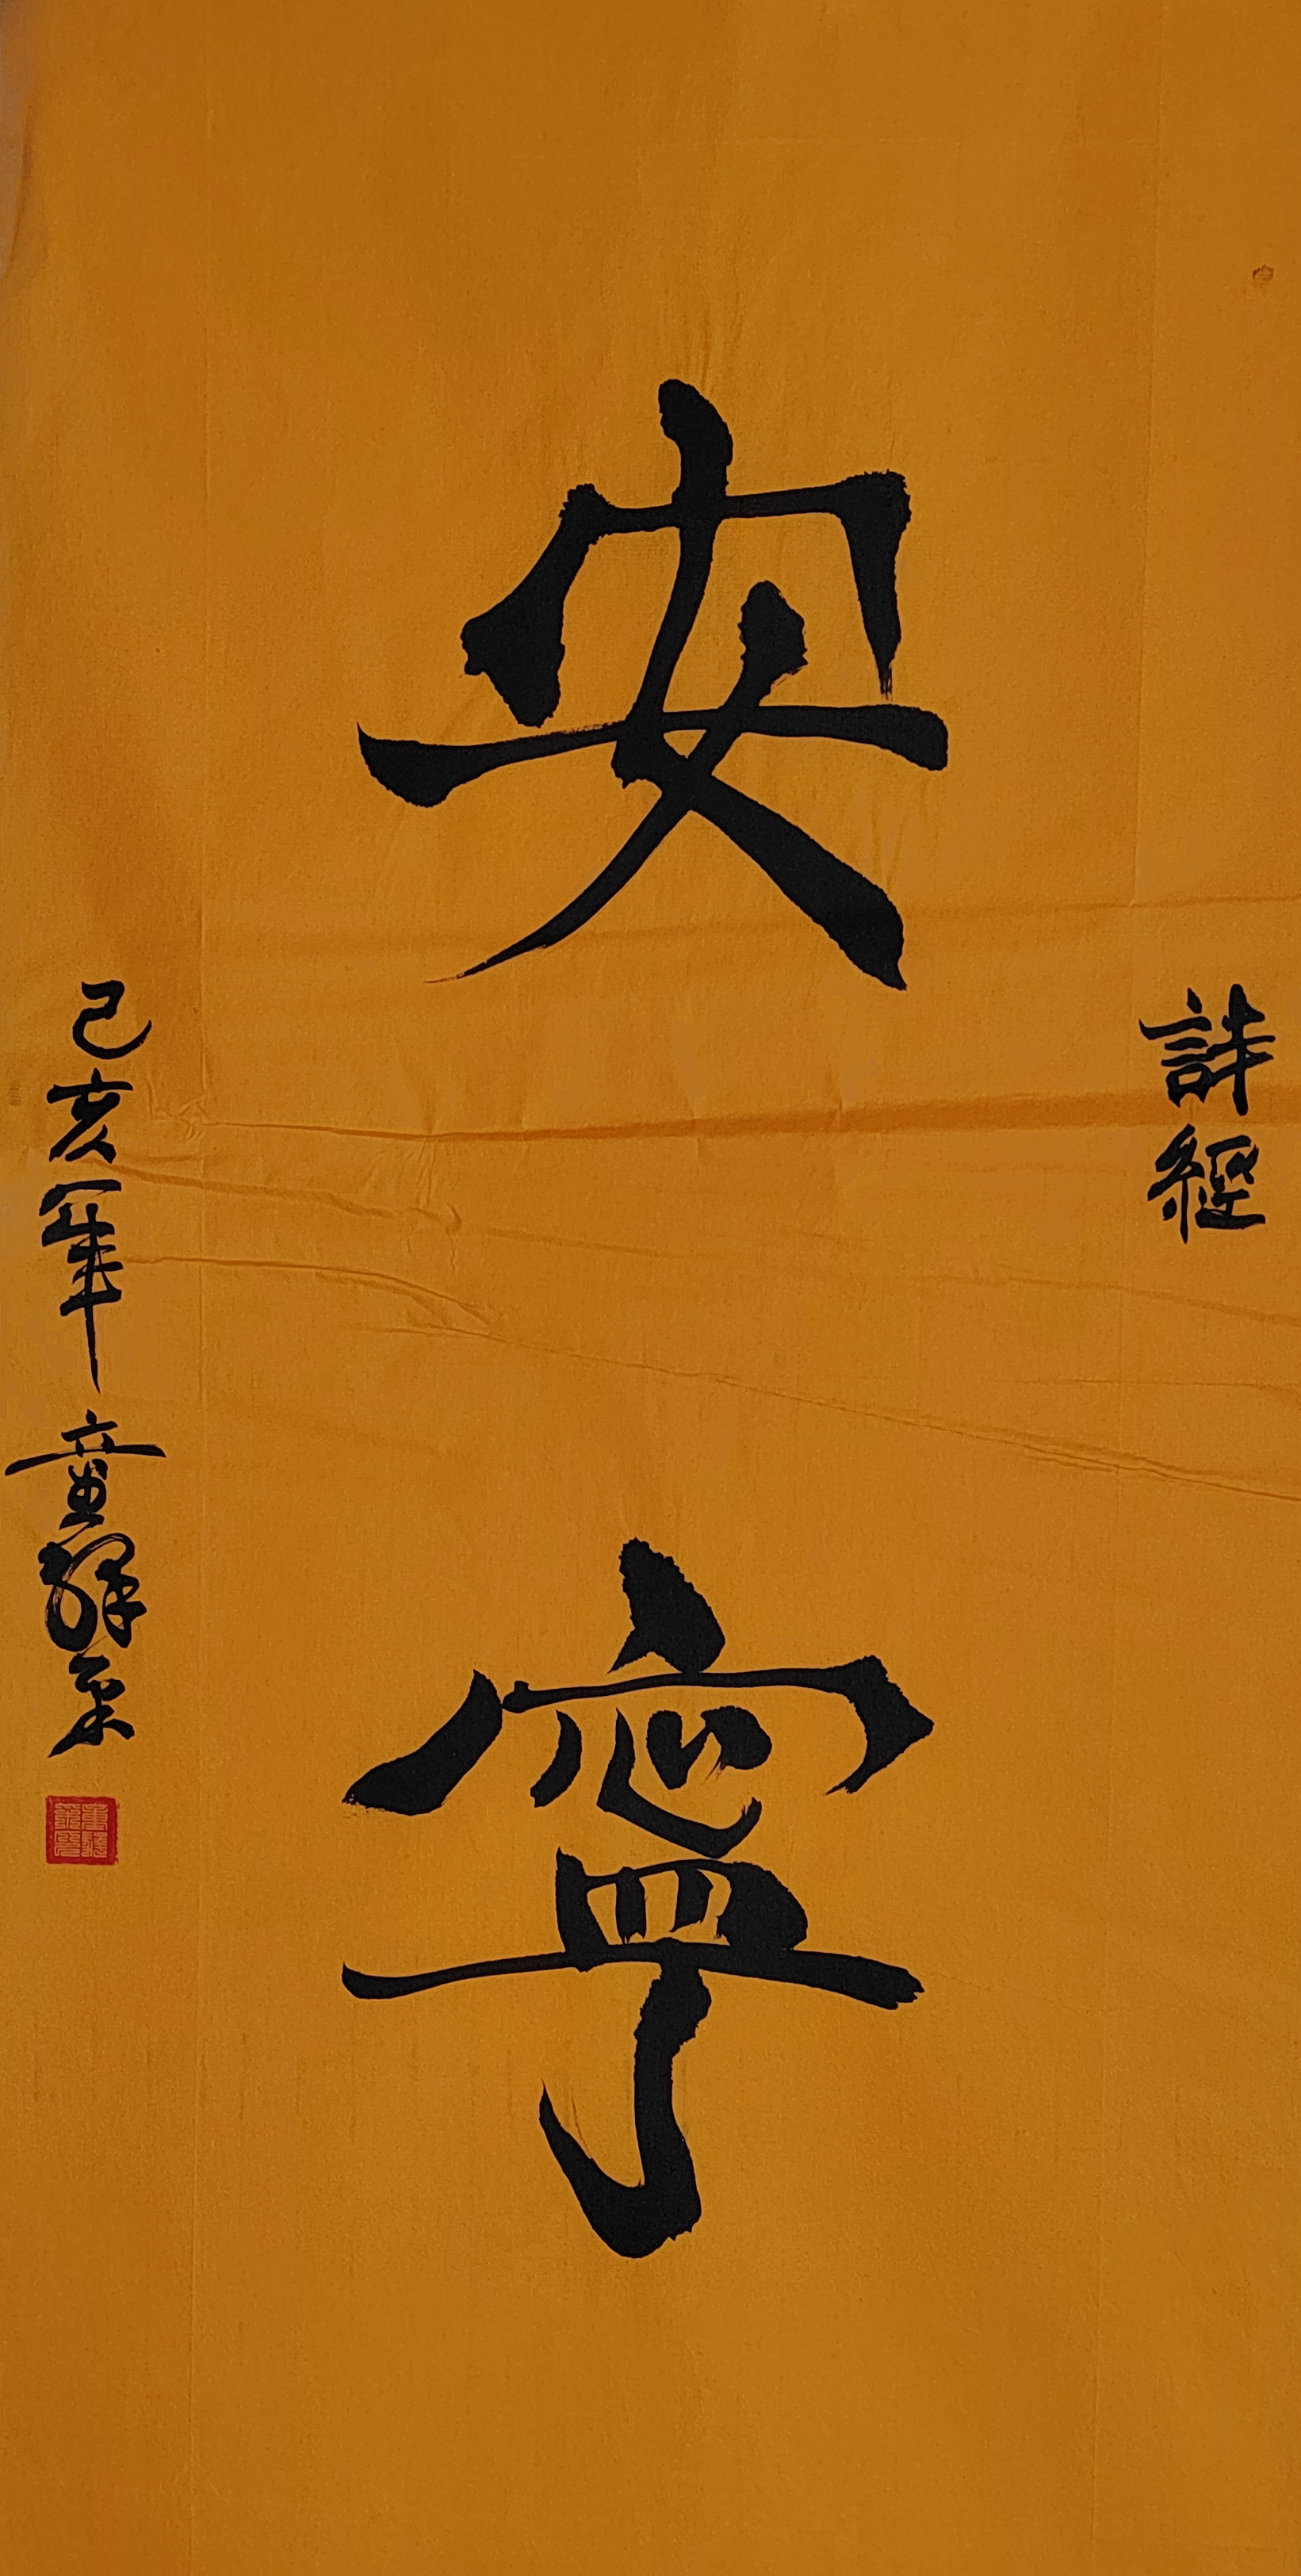 詩經
安寧
己亥年 童驛采